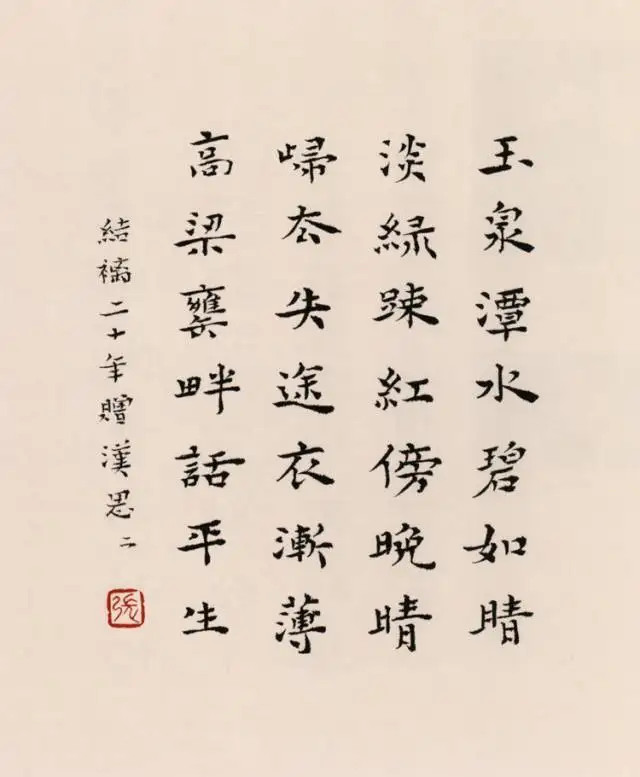 玉泉潭水碧如睛
淡綠踈紅傍晚晴
㱕厺失途衣漸薄
高梁甕畔話平生
結褵二十年贈漢思二
張